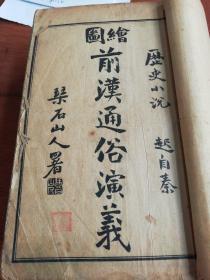 繪圖
前漢通俗演義
歷史小說 起自秦
琹石山人署